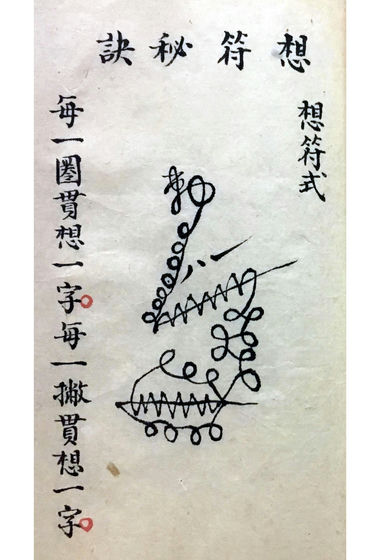 想符秘訣
想符式
每一圈貫想一字。每一撇貫想一字。